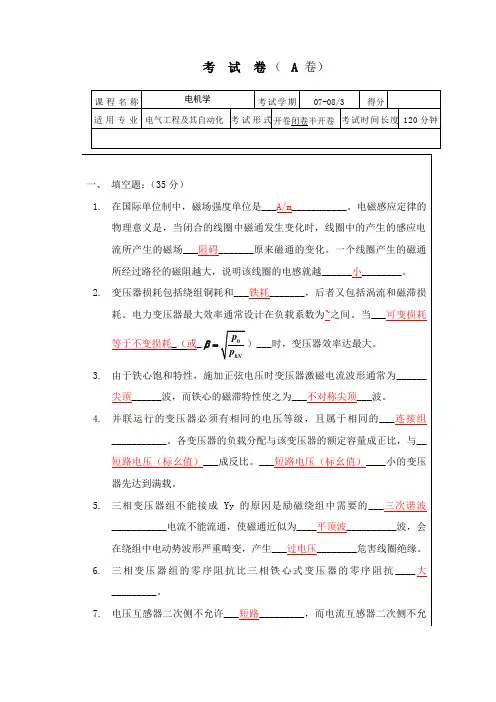 考 试 卷（ A 卷）
课 程 名 称 电机学 考 试 学 期 07-08/3 得分
适 用 专 业 电气工程及其自动化 考 试 形 式 开卷闭卷半开卷 考试时间长度 120 分钟
一、 填空题:（35 分）
1. 在国际单位制中，磁场强度单位是___A/m___________。电磁感应定律的
物理意义是，当闭合的线圈中磁通发生变化时，线圈中的产生的感应电
流所产生的磁场___阻碍_______原来磁通的变化。一个线圈产生的磁通
所经过路径的磁阻越大，说明该线圈的电感就越______小________。
2. 变压器损耗包括绕组铜耗和___铁耗_______，后者又包括涡流和磁滞损
耗。电力变压器最大效率通常设计在负载系数为~之间。当___可变损耗
等于不变损耗_（或_β=√(p0/pkN)）___时，变压器效率达最大。
3. 由于铁心饱和特性，施加正弦电压时变压器激磁电流波形通常为______
尖顶______波，而铁心的磁滞特性使之为___不对称尖顶___波。
4. 并联运行的变压器必须有相同的电压等级，且属于相同的___连接组
___________。各变压器的负载分配与该变压器的额定容量成正比，与__
短路电压（标幺值）___成反比。___短路电压（标幺值）____小的变压
器先达到满载。
5. 三相变压器组不能接成 Yy 的原因是励磁绕组中需要的___三次谐波
___________电流不能流通，使磁通近似为____平顶波__________波，会
在绕组中电动势波形严重畸变，产生___过电压________危害线圈绝缘。
6. 三相变压器组的零序阻抗比三相铁心式变压器的零序阻抗____大
_________。
7. 电压互感器二次侧不允许___短路_________，而电流互感器二次侧不允